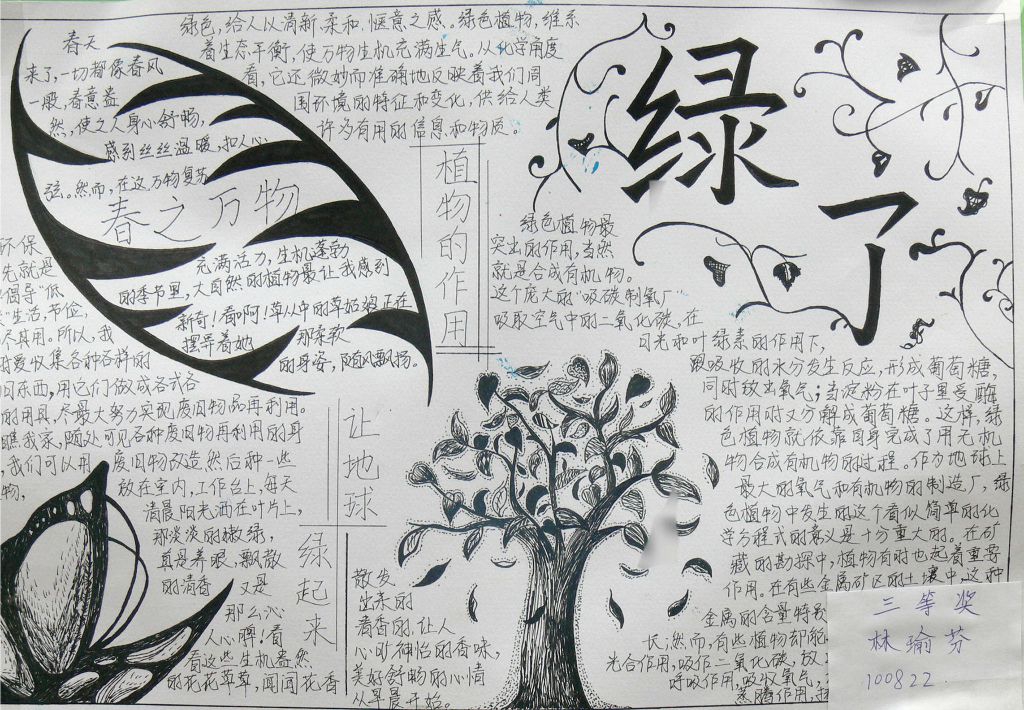 绿了
绿色,给人以清新,柔和,惬意之感。绿色植物,维系
着生态平衡,使万物生机充满生气。从化学角度
看,它还微妙而准确地反映着我们周
围环境的特征和变化,供给人类
许多有用的信息和物质。
植物的作用
绿色植物最
突出的作用,当然
就是合成有机物。
这个庞大的“吸碳制氧厂”
吸取空气中的二氧化碳,在
日光和叶绿素的作用下,
跟吸收的水分发生反应,形成葡萄糖,
同时放出氧气;当淀粉在叶子里受酶
的作用时又分解成葡萄糖。这样,绿
色植物就依靠自身完成了用无机
物合成有机物的过程。作为地球上
最大的氧气和有机物的制造厂,绿
色植物中发生的这个看似简单的化
学方程式的意义是十分重大的。在矿
藏的勘探中,植物有时也起着重要
作用。在有些金属矿区的土壤中,这种
金属的含量特
长;然而,有些植物却能
光合作用,吸作二氧化碳,放
呼吸作用,吸收氧气,
蒸腾作用,
春之万物
春天
来了,一切都像春风
一般,春意盎
然,使之人身心舒畅,
感到丝丝温暖,扣人心
弦。然而,在这万物复苏
充满活力,生机蓬勃
的季节里,大自然的植物最让我感到
新奇!看啊!草丛中的草姑婆正在
摆弄着她 那柔软
的身姿,随风飘扬。
让地球
绿起来
环保
先就是
倡导“低
”生活,节俭,
尽其用。所以,我
时爱收集各种各样的
旧东西,用它们做成各式各
的用具,尽最大努力实现废旧物品再利用。
瞧我家,随处可见各种废旧物再利用的身
,我们可以用 废旧物改造,然后种一些
物, 放在室内,工作台上,每天
清晨阳光洒在叶片上,
那淡淡的嫩绿,
真是养眼,飘散
的清香 又是
那么沁
人心脾!看
着这些生机盎然
的花花草草,闻闻花香
散发
出来的
着香的,让人
心旷神怡的香味,
美好舒畅的心情
从早晨开始。
三等奖
林瑜芬
100822